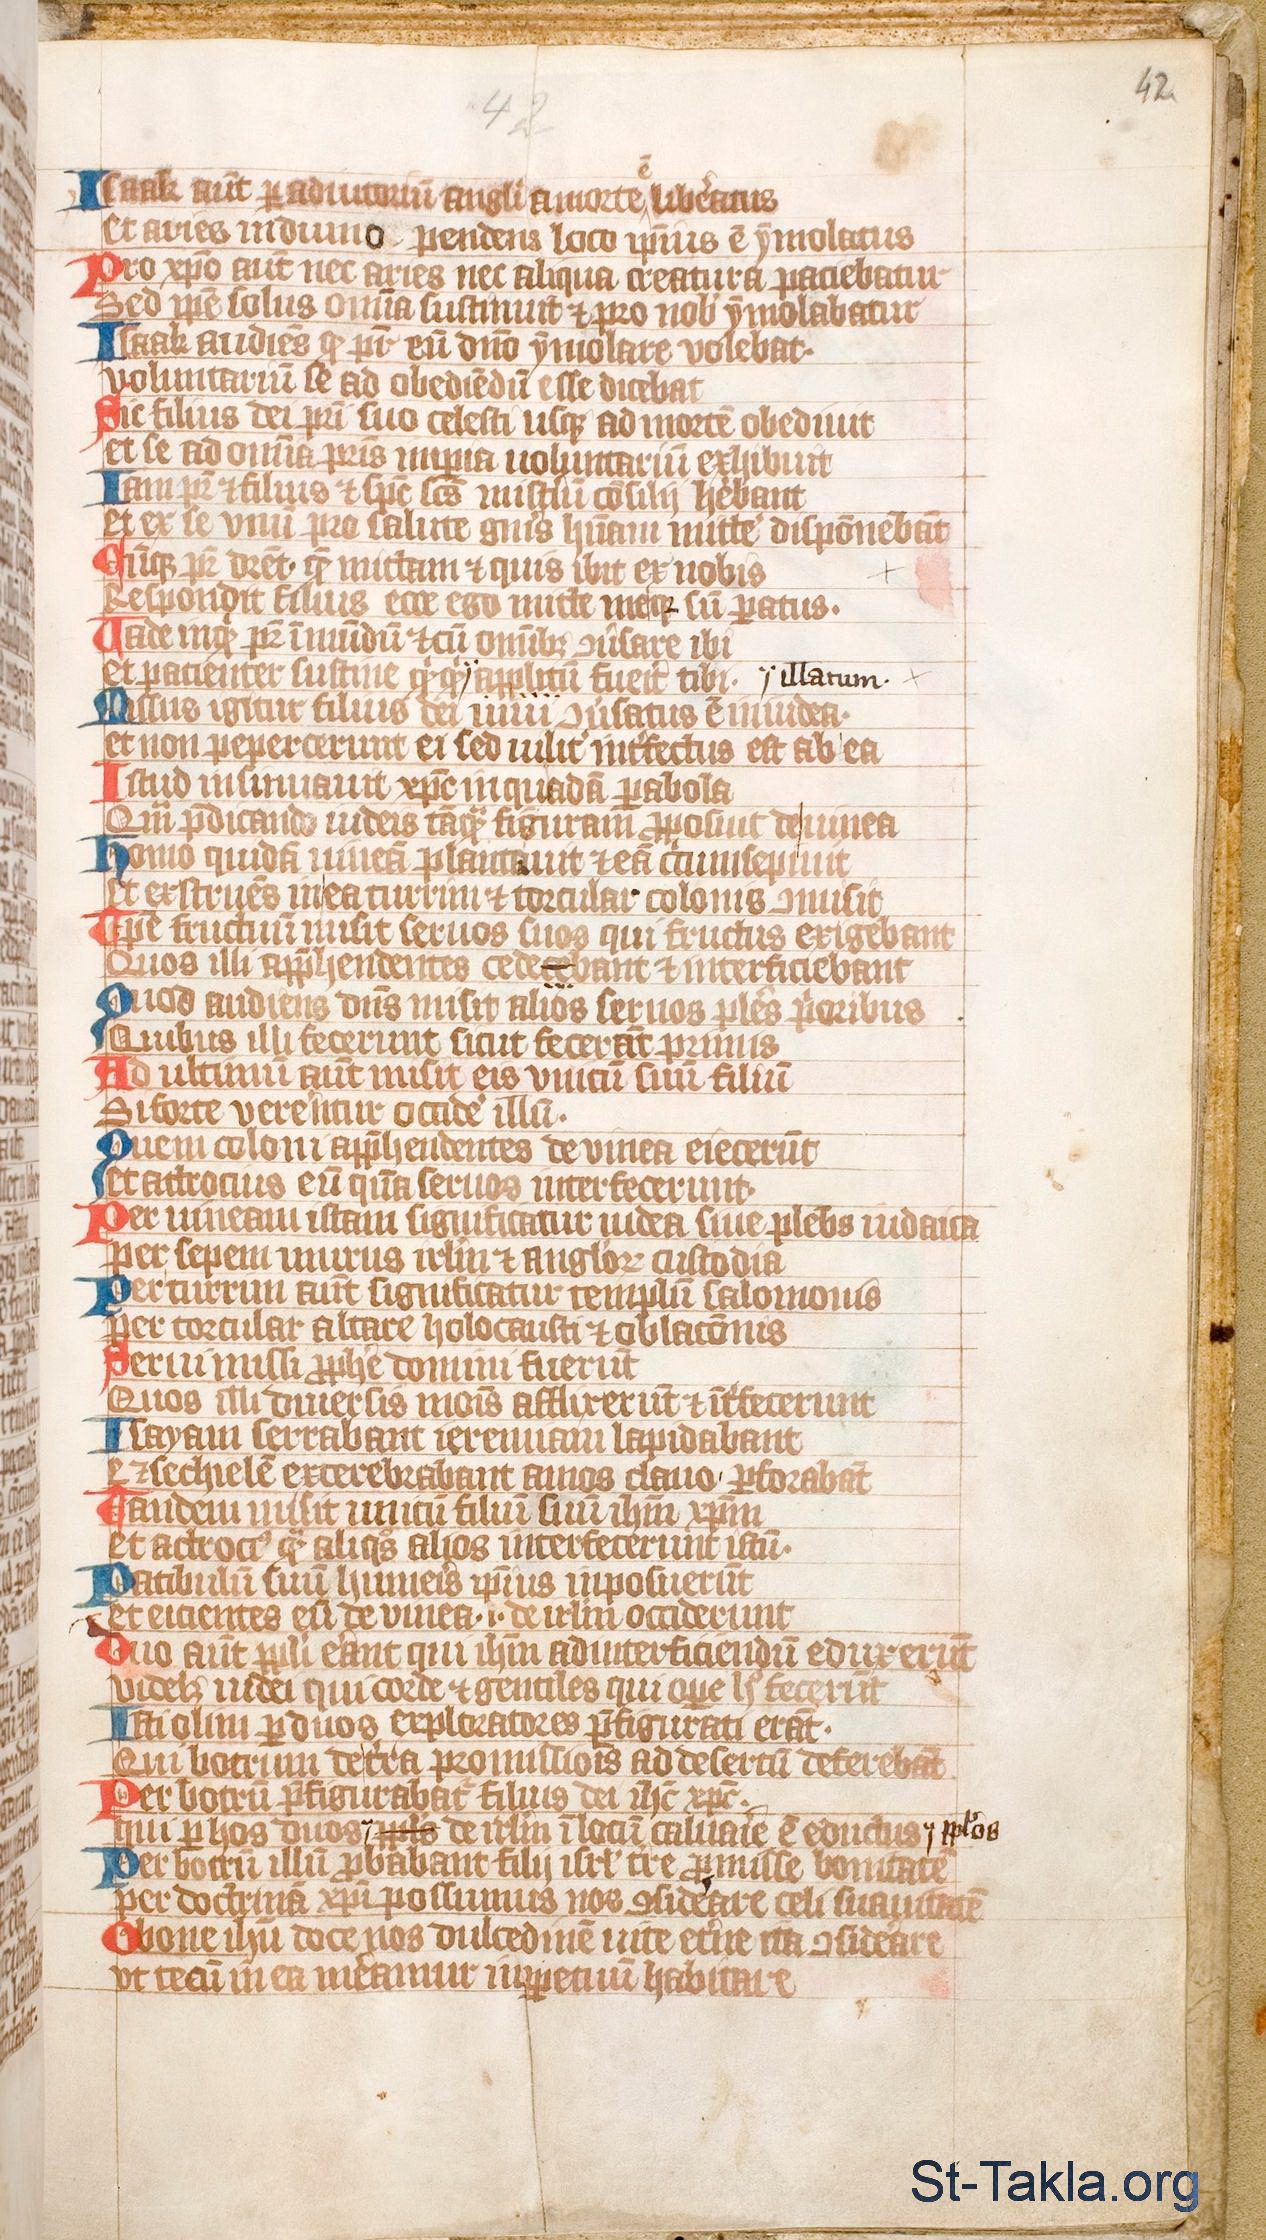 42
42
Isaak aūt ꝑ adiutoriū angli a morte ē liberatus
et aries in dumo pendens loco ipīus ē ȳmolatus
Pro xp̄o aūt nec aries nec aliqua creatura paciebatur
Sed ip̄e solus om̄ia sustinuit ⁊ pro nob' ȳmolabatur
Isaak audiēs qꝫ pr̄ eū dn̄o ȳmolare volebat·
voluntariū se ad obediēdū esse dicebat
Sic filius dei pr̄i suo celesti usqꝫ ad mortē obediuit
et se ad om̄ia pr̄is imꝑia uoluntariū exhibuit
Iam pr̄ ⁊ filius ⁊ sp̄c sc̄s cōsilij hēbant
et ex se vnū pro salute gn̄is hūani mitte' dispōnebāt
Cūqꝫ pr̄ mittam ⁊ quis ibit ex nobis
Respondit filius ecce ego mitte me sū ꝑatus·
Uade inqͥ pr̄ ī mūdū ⁊ cū om̄ibꝫ ꝯuersare ibi
et pacienter sustine applicitū fuerit tibi· illatum·
Missus igitur filius dei ꝯuersatus ē in iudea·
et non pepercerunt ei sed int'fectus est ab ea
Istud insinuauit xp̄c in quadā ꝑabola
Qm̄ p̄dicando iudeis tāqͣꝫ figuram ꝓposuit de uinea
Homo quidā uineā plantauit ⁊ eā circumsepiuit
et exstruēs in ea turrim ⁊ torcular colonis ꝯmisit
Tp̄e fructuū misit seruos suos qui fructus exigebant
Quos illi app̄hendentes cedebant ⁊ interficiebant
Quod audiens dn̄s misit alios seruos pl'es p̄oribus
Quibus illi fecerunt sicut fecerāt primis
Ad ultimū aūt misit eis vnicū suū filiū
Si forte vere'ntur occide' illū·
Quem coloni app̄hendentes de vinea eiecerūt
et attrocius eū qua seruos interfecerunt·
Per uineam istam significatur iudea siue plebs iudaica
per sepem murus irl̄m ⁊ anglorꝝ custodia
Per turrim aūt significatur templū salomonis
per torcular altare holocausti ⁊ oblacōnis
Serui missi ꝓphe domini fuerūt
Quos illi diuersis mōis afflixerūt ⁊ īt'fecerunt
Isayam serrabant ieremiam lapidabant
Ezechielē excerebrabant amos clauo ꝑforabāt
Tandem misit unicū filiū suū ih̄m xp̄m
et attroci' qͣꝫ aliqͦs alios interfecerunt istū·
Patibulū suū humeris ipīus inposuerūt
et eicientes eū de vinea·i·de irl̄m occiderunt
Duo aūt ppl̄i erant qui ih̄m ad interficiendū eduxerūt
videlꝫ iudei qui corde ⁊ gentiles qui oꝑe hͦ fecerūt
Isti olim ꝑ duos exploratores p̄figurati erāt·
Qui botrum de terra promissiōis ad desertū deferebāt
Per botrū p̄figurabat' filius dei ih̄c xp̄c·
qui ꝑ hos duos de irl̄m ī locū caluarie ē eductus ppl'os
Per botrū illū ꝓbabant filij isrl' t're ꝓmisse bonitatē
per doctrinā xp̄i possumus nos ꝯsiderare celi suauitatē
O bone ih̄u doce nos dulcedinē uite et'ne ita ꝯsiderare
vt tecū in ea mereamur inꝑpetuū habitare
St-Takla.org